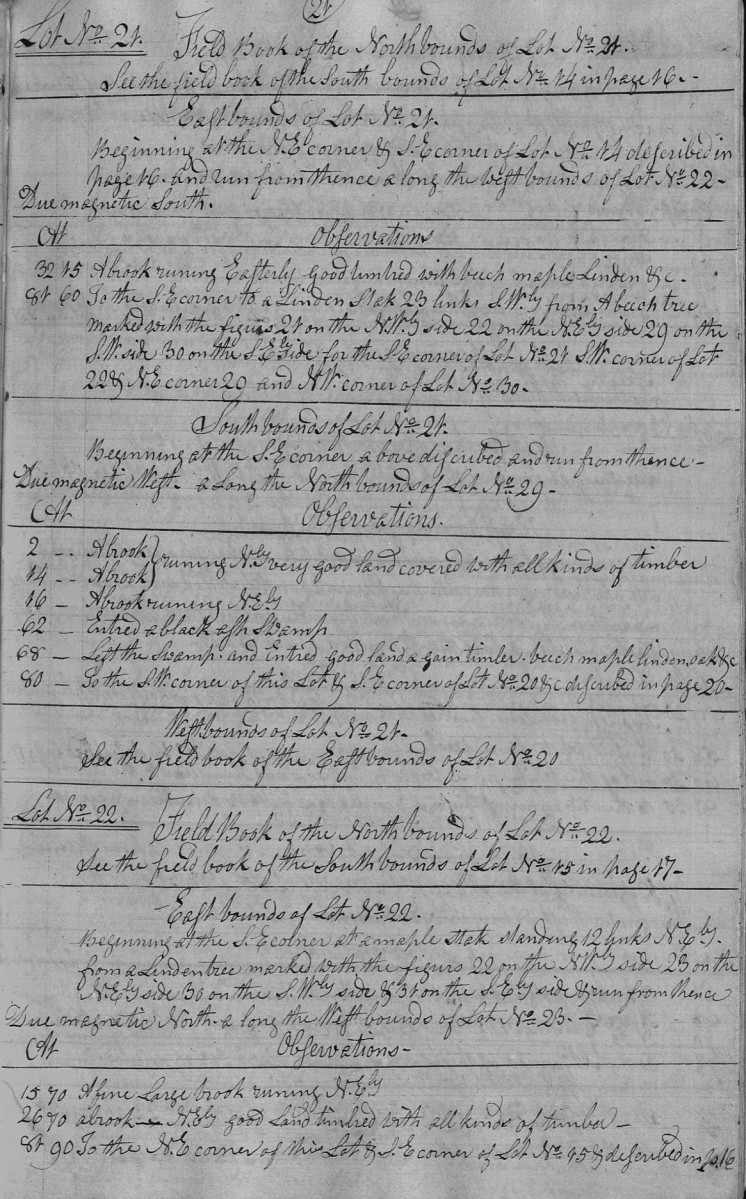 21
Lot No. 21. Field Book of the North bounds of Lot No. 21.
See the field book of the South bounds of Lot No. 14 in page 16.-
East bounds of Lot No. 21.
Beginning at the N.E corner & S.E corner of Lot No. 14 described in
page 16. and run from thence a long the west bounds of Lot No. 22-
Due magnetic South.
At Observations
32 15 A brook runing Easterly good timbred with beech maple Linden &c-
81 60 To the S.E corner to a Linden Stak 23 links S.Wly from A beech tree
marked with the figurs 21 on the N.Wly side 22 on the N.Ely side 29 on the
S.W. side 30 on the S.Ely side for the S.E corner of Lot No. 21 S.W. corner of Lot
22 & N.E corner 29 and N.W. corner of Lot No. 30.
South bounds of Lot No. 21.
Beginning at the S.E corner a bove discribed and run from thence-
Due magnetic West. a long the North bounds of Lot No. 29-
At Observations.
2 -. A brook } runing N.ly very good land covered with all kinds of timber
14 -- A brook
16 - A brook runing N.Ely
62 - Entred a black ash Swamp
68 - Left the Swamp. and Entred good land a gain timber. beech maple linden oak &c
80 - To the S.W. corner of this Lot & S.E corner of Lot No. 20 &c described in page 20-
West bounds of Lot No. 21-
See the field book of the East bounds of Lot No. 20
Lot No. 22. Field Book of the North bounds of Lot No. 22.
See the field book of the South bounds of Lot No. 15 in page 17-
East bounds of Lot No. 22.
Beginning at the S.E corner at a maple stak standing 12 links N.Ely.
from a Linden tree marked with the figurs 22 on the N.W.ly side 23 on the
N.Ely side 30 on the S.W.ly side & 31 on the S.Ely side & run from thence
Due magnetic North. a long the West bounds of Lot No. 23.-
At Observations-
15 70 A fine Large brook runing N.Ely
26 70 a brook - N.Ely good Land timbred with all kinds of timber-
81 90 To the N.E corner of this Lot & S.E corner of Lot No. 15 & described in p.16